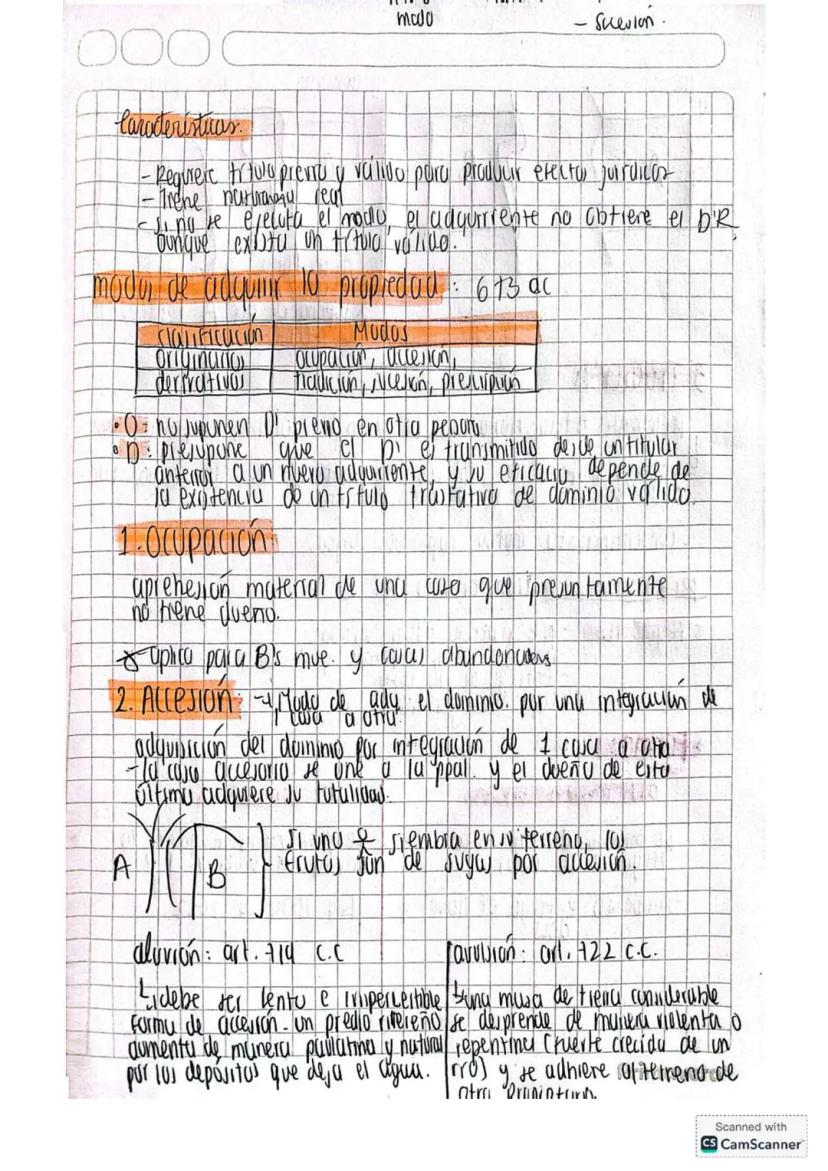 modo
- Sucesión.
Características.
- Requiere título previo y válido para producir efectos jurídicos
- Tiene naturaleza real
- Si no se ejecuta el modo, el adquirente no obtiene el D'R,
aunque exista un título válido.
modos de adquirir la propiedad: 673 CC
clasificación Modos
originarios ocupación, accesión,
derivativos tradición, sucesión, prescripción
• O: no suponen D' previo en otra persona
• D: presupone que el D' es transmitido desde un titular
anterior a un nuevo adquirente, y su eficacia depende de
la existencia de un título traslativo de dominio válido.
1. Ocupación:
aprehesión material de una cosa que presuntamente
no tiene dueño.
* aplica para B's mue. y cosas abandonadas
2. Accesión: → Modo de adq el dominio. por una integración de
1 cosa a otra.
adquisición del dominio por integración de 1 cosa a otra
- la cosa accesoria se une a la ppal. y el dueño de esta
última adquiere su totalidad.
A B } Si una siembra en su terreno, los
frutos son de suyos por accesión.
aluvión: art. 719 C.C
↳ debe ser lento e imperceptible
forma de accesión. un predio ribereño
aumenta de manera paulatina y natural
por los depósitos que deja el agua.
avulsión: art. 722 C.C.
↳ una masa de tierra considerable
se desprende de manera violenta o
repentina (fuerte crecida de un
río) y se adhiere al terreno de
otro propietario.
Scanned with
CS CamScanner